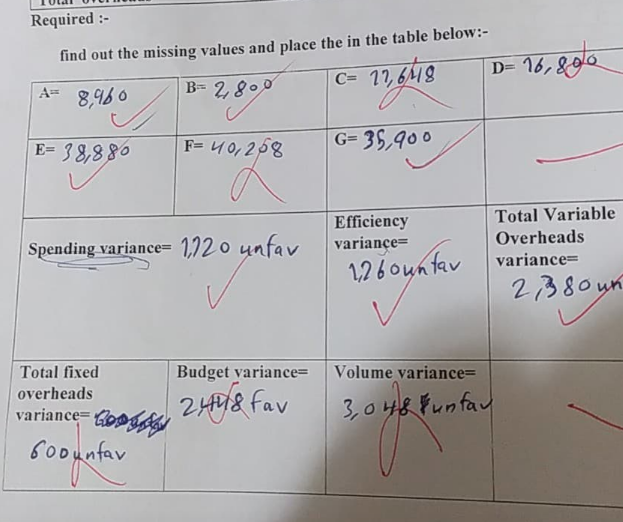 Required :-
find out the missing values and place the in the table below:-
A= 8,960
B= 2,800
C= 17,648
D= 16,800
E= 38,880
F= 40,258
G= 35,900
Spending variance= 1,120 unfav
Efficiency
variance=
1,260 unfav
Total Variable
Overheads
variance=
2,380 un
Total fixed
overheads
variance=
600 unfav
Budget variance=
2,448 fav
Volume variance=
3,048 unfav